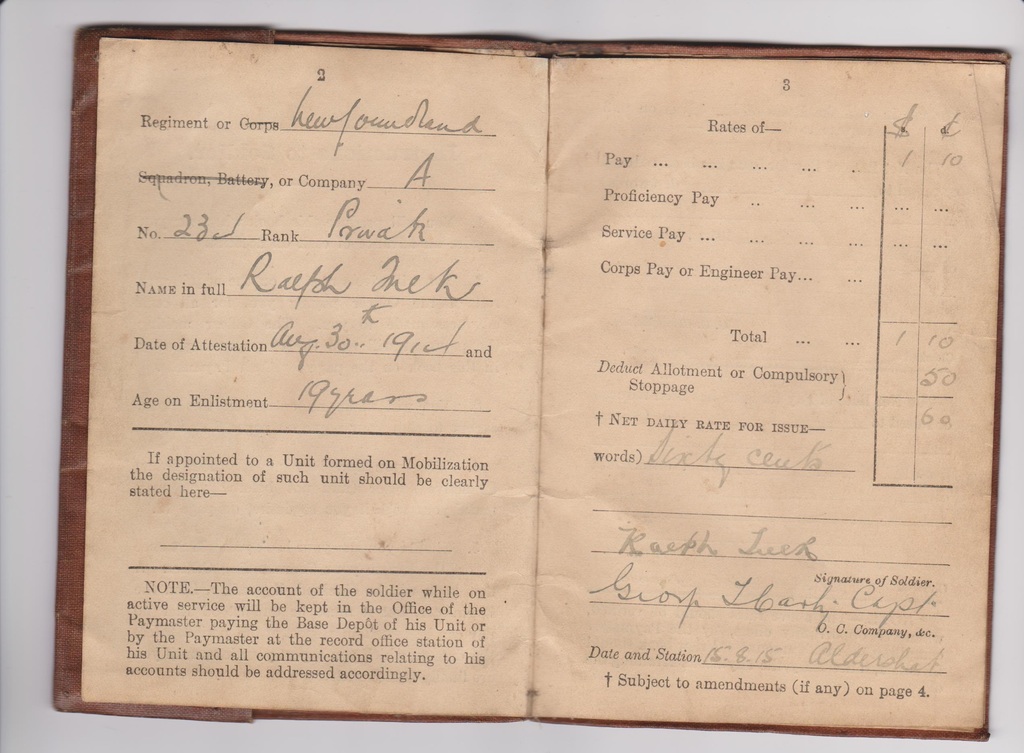 2
Regiment or Corps Newfoundland
Squadron, Battery, or Company A
No. Rank Private
NAME in full Ralph
Date of Attestation Aug. 30th 1914 and
Age on Enlistment 19 years
If appointed to a Unit formed on Mobilization
the designation of such unit should be clearly
stated here—
NOTE.—The account of the soldier while on
active service will be kept in the Office of the
Paymaster paying the Base Depôt of his Unit or
by the Paymaster at the record office station of
his Unit and all communications relating to his
accounts should be addressed accordingly.
3
Rates of— $ ¢
Pay ... ... ... ... .. 1 10
Proficiency Pay .. ... ... ... ...
Service Pay ... ... ... ... ... ...
Corps Pay or Engineer Pay... ...
Total ... ... 1 10
Deduct Allotment or Compulsory }
Stoppage 50
† NET DAILY RATE FOR ISSUE— 60
words) Sixty cents
Ralph
Signature of Soldier.
Capt.
O. C. Company, &c.
Date and Station 15.8.15 Aldershot
† Subject to amendments (if any) on page 4.